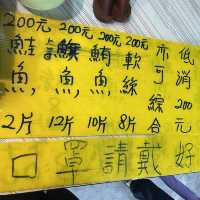 200元
鮭魚,
2片
200元
旗魚,
12片
200元
鮪魚,
10片
200元
軟絲
8片
亦可綜合
低消200元
口罩請戴好